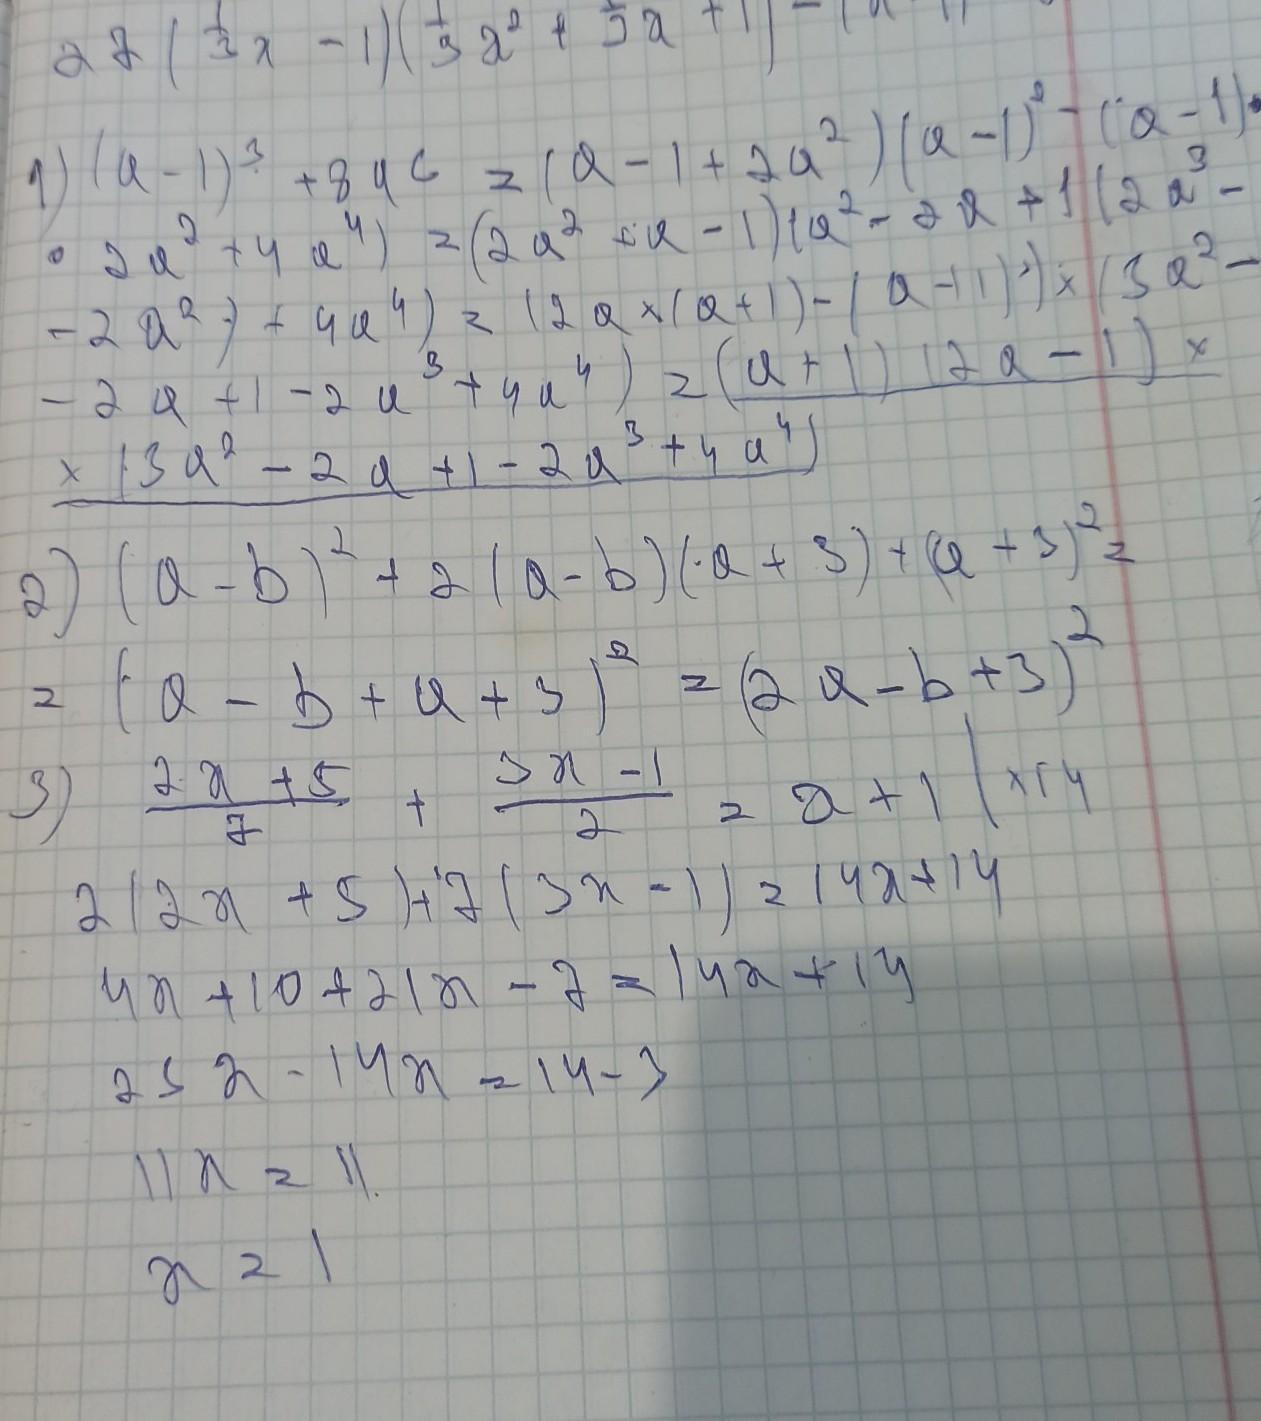 27(1/3x - 1)(1/9x² + 1/3x + 1) - (
1) (a-1)³ + 8a6 = (a - 1 + 2a²)(a-1)² - (a-1)·
· 2a² + 4a⁴) = (2a² + a - 1)(a² - 2a + 1(2a³ -
- 2a²) + 4a⁴) = (2a × (a+1) - (a+1)) × (3a² -
- 2a + 1 - 2a³ + 4a⁴) = (a+1)(2a-1) ×
× (3a² - 2a + 1 - 2a³ + 4a⁴)
2) (a-b)² + 2(a-b)(a+3) + (a+3)² =
= (a - b + a + 3)² = (2a - b + 3)²
3) (2x+5)/7 + (3x-1)/2 = x + 1 | ×14
2(2x + 5) + 7(3x - 1) = 14x + 14
4x + 10 + 21x - 7 = 14x + 14
25x - 14x = 14 - 3
11x = 11.
x = 1